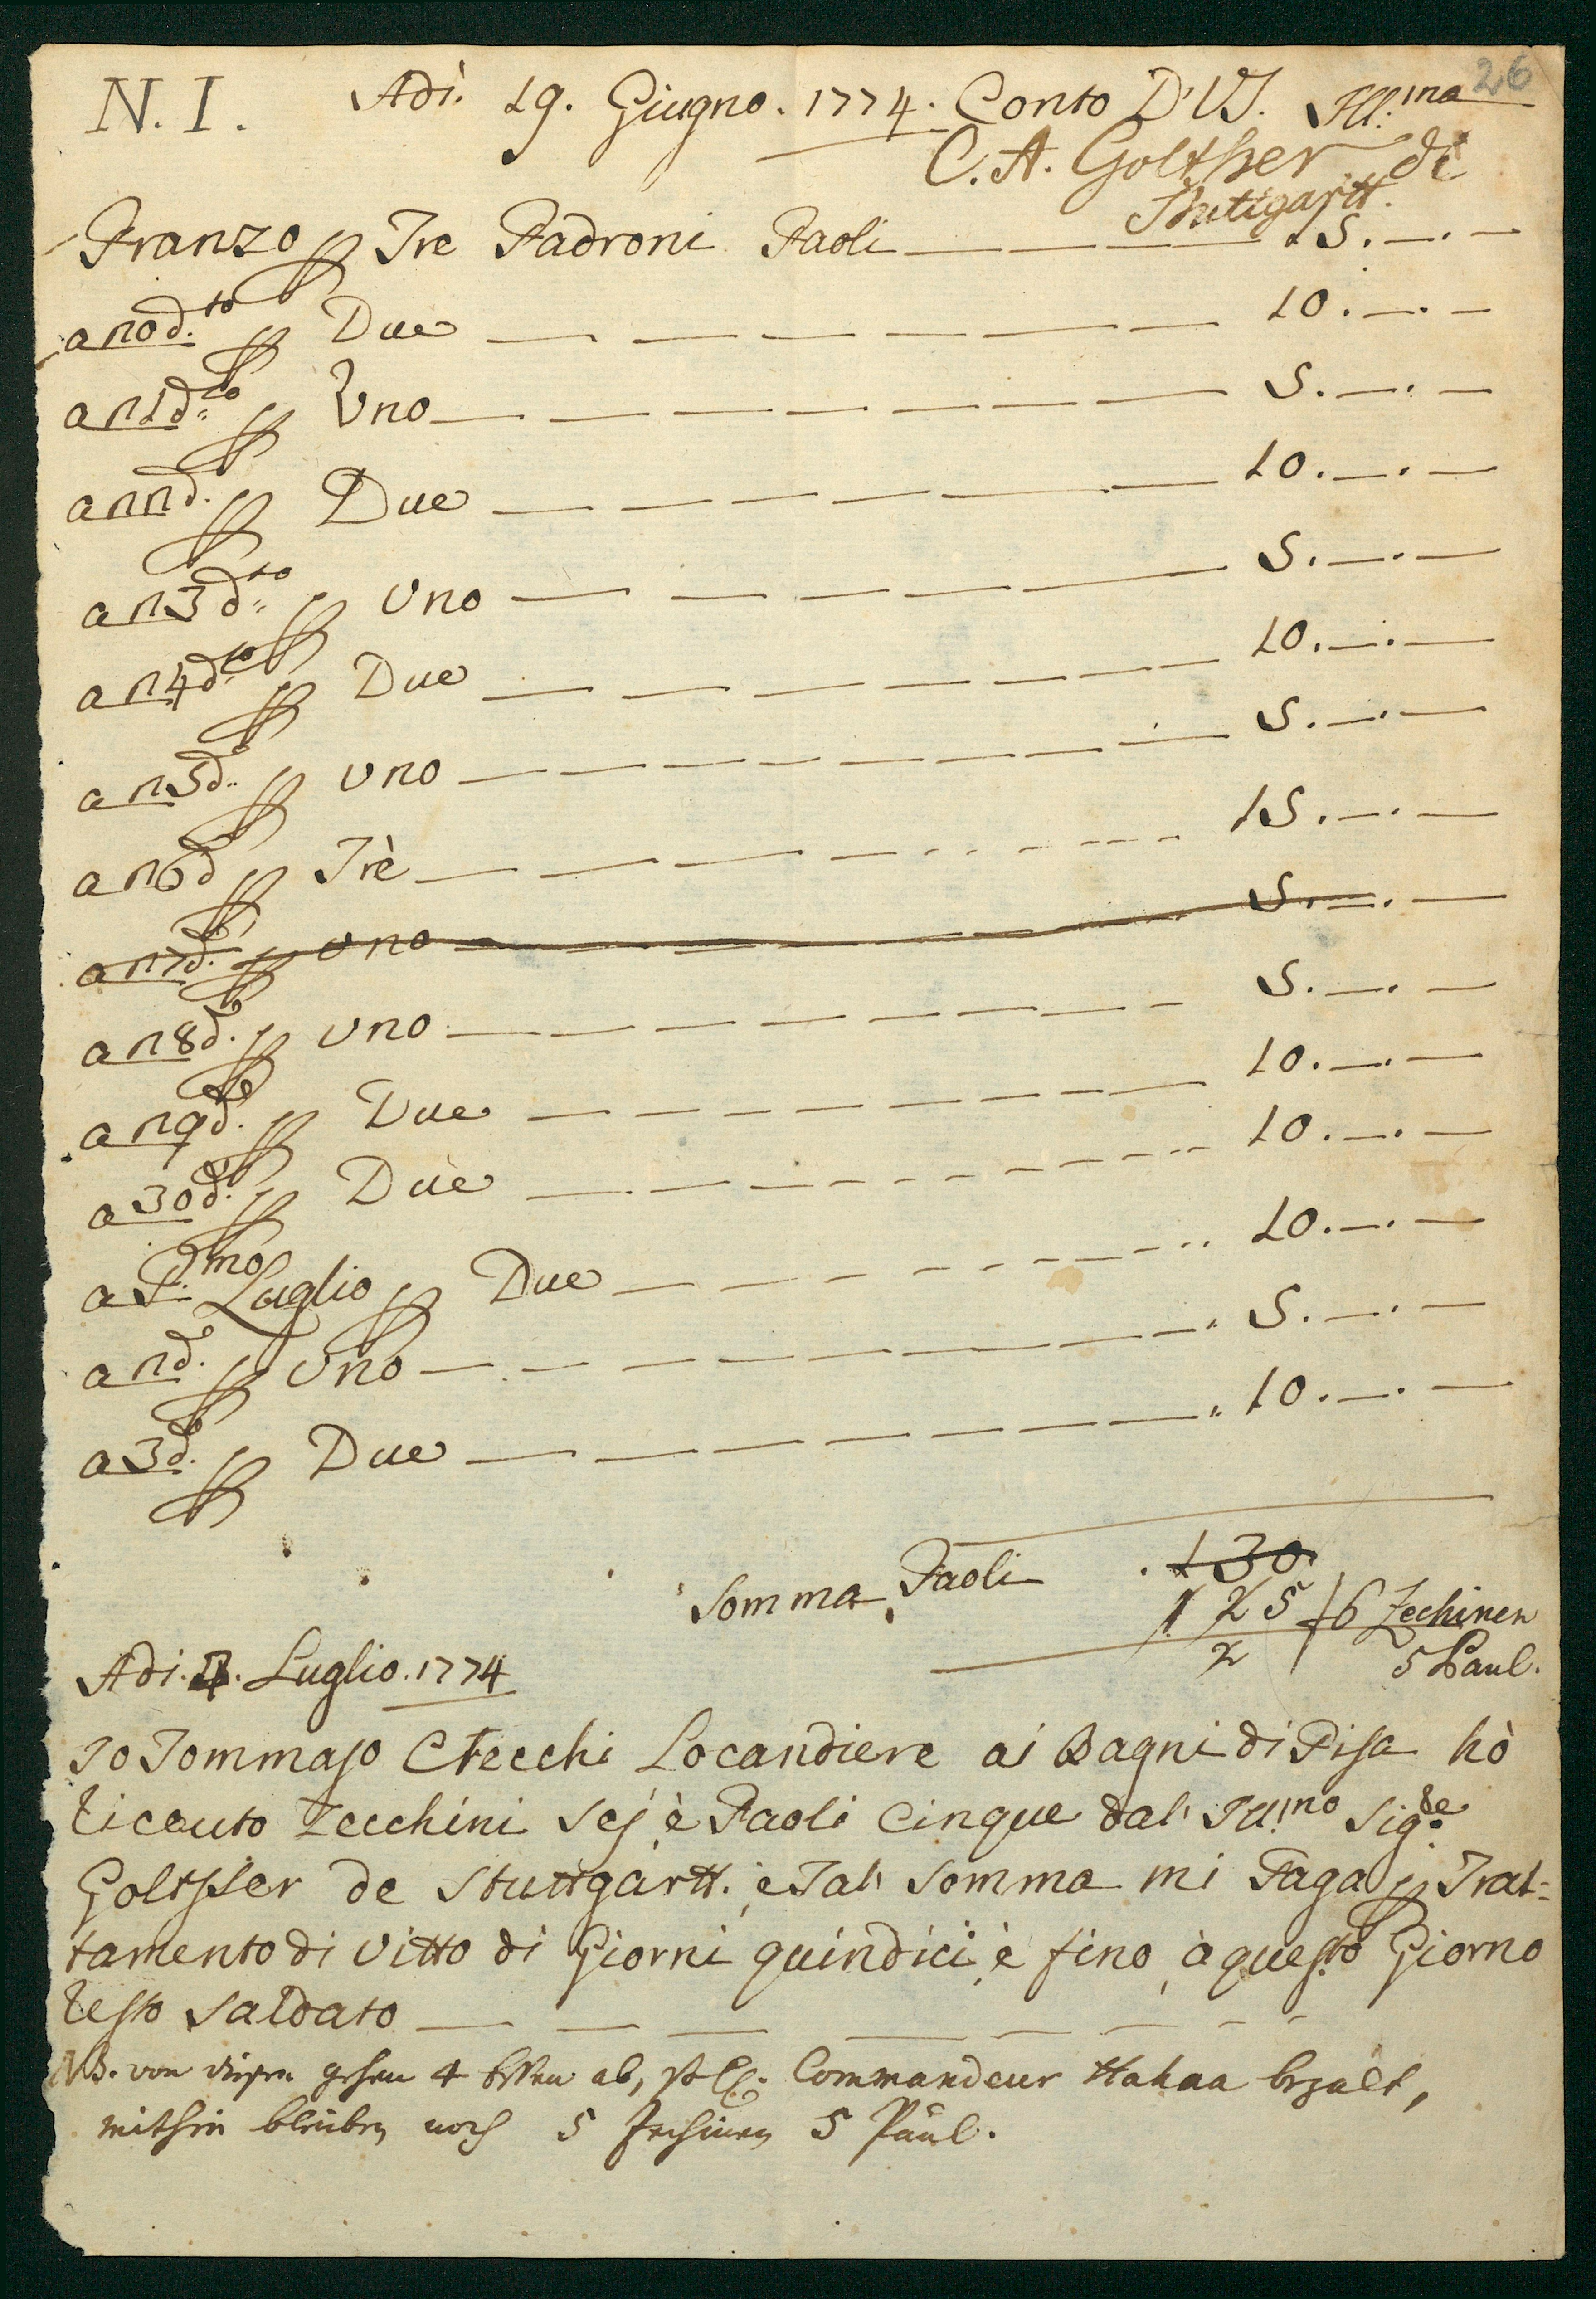 26
N. I. Adì. 19. Giugno. 1774. Conto D'VS. Ill:ma
C. A. Golther di
Stuttgartt.
Pranzo p Tre Padroni Paoli 15.
a 20 d.to p Due 10.
a 21 d.to p Uno 5.
a 22 d. p Due 10.
a 23 d.to p Uno 5.
a 24 d.to p Due 10.
a 25 d.o p Uno 5.
a 26 d.o p Trè 15.
a 27 d.o p Uno 5.
a 28 d.o p Uno 5.
a 29 d.o p Due 10.
a 30 d.o p Due 10.
a P.mo Luglio p Due 10.
a 2 d.o p Uno 5.
a 3 d.o p Due 10.
Somma, Paoli 130.
125 / 6 Zechinen
2 5 Paul.
Adi. Luglio. 1774
Io Tommaso Checchi Locandiere ai Bagni di Pisa hò
riceuto Zecchini sej è Paoli Cinque dal Ill:mo Sig.re
Golther de Stuttgartt. è Tal somma mi Paga p Trat=
tamento di Vitto di Giorni quindici è fino à questo Giorno
resto Saldato
NB. von diesen gehen 4 Essen ab, Commandeur bezalt,
mithin bleiben noch 5 Zechinen 5 Paul.